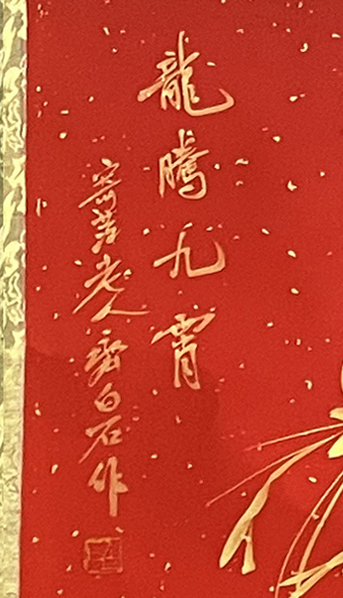 龍騰九霄
寄萍老人齊白石作